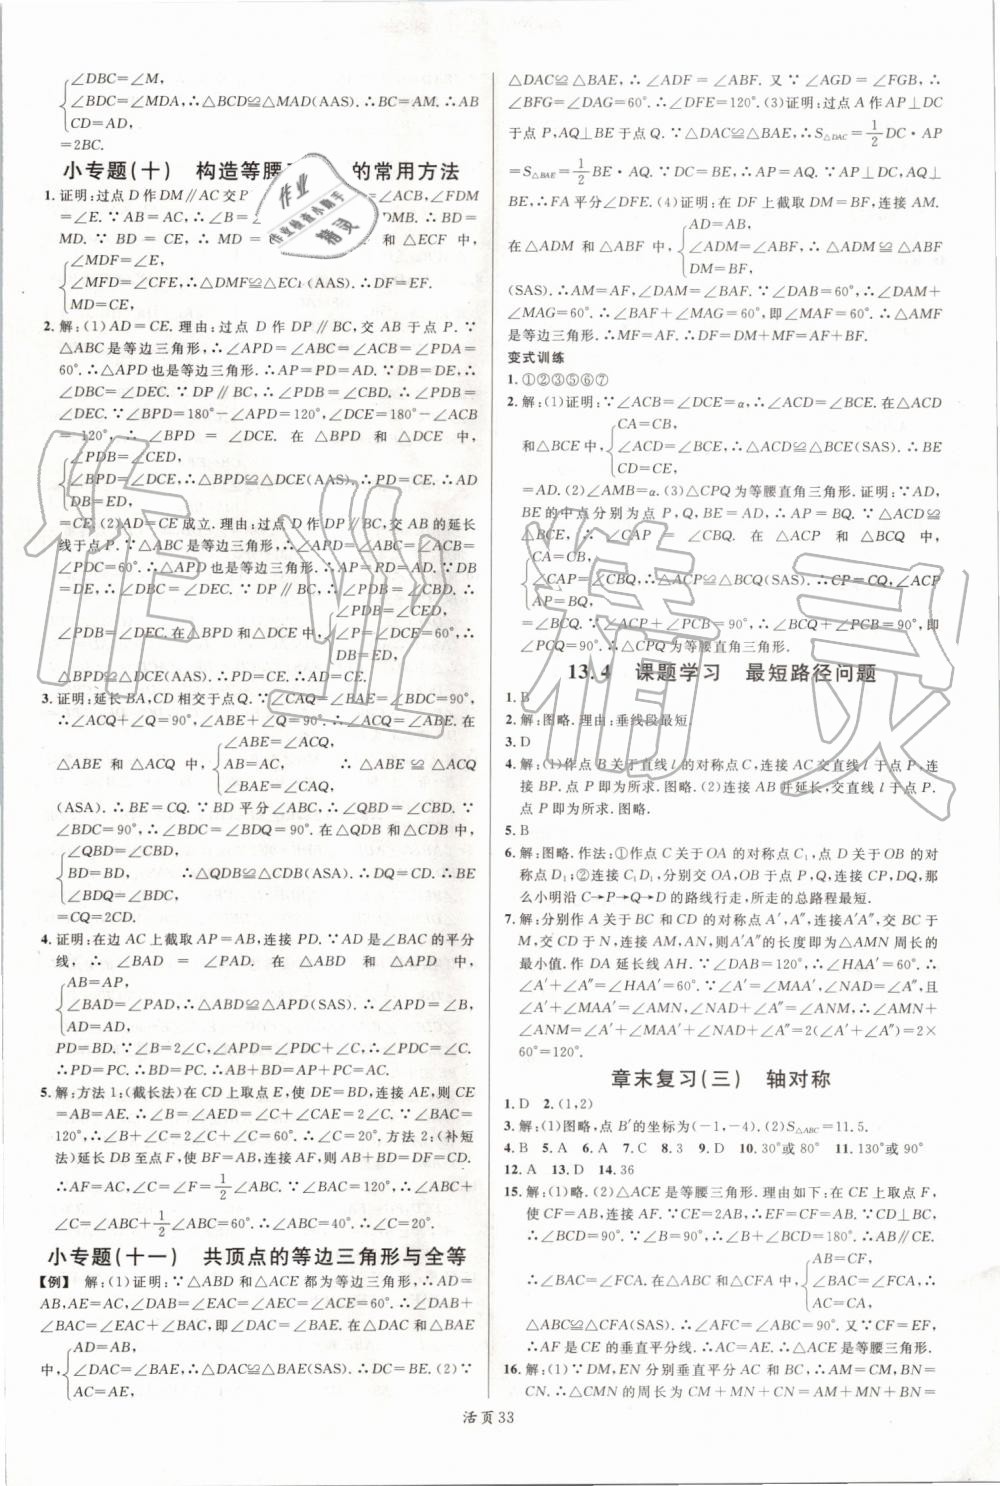 ∠DBC=∠M,
∠BDC=∠MDA, ∴△BCD≌△MAD(AAS).∴BC=AM.∴AB
CD=AD,
=2BC.
小专题(十) 构造等腰 的常用方法
1. 证明:过点 D 作 DM∥AC 交 =∠ACB,∠FDM
=∠E.∵AB=AC,∴∠B= DMB.∴BD=
MD.∵BD=CE,∴MD= 和△ECF 中,
∠MDF=∠E,
∠MFD=∠CFE,∴△DMF≌△ECF(AAS).∴DF=EF.
MD=CE,
2. 解:(1)AD=CE.理由:过点 D 作 DP∥BC,交 AB 于点 P.∵
△ABC 是等边三角形,∴∠APD=∠ABC=∠ACB=∠PDA=
60°.∴△APD 也是等边三角形.∴AP=PD=AD.∵DB=DE,∴
∠DBC=∠DEC.∵DP∥BC,∴∠PDB=∠CBD.∴∠PDB=
∠DEC.∵∠BPD=180°-∠APD=120°,∠DCE=180°-∠ACB
=120°,∴∠BPD=∠DCE.在△BPD 和△DCE 中,
∠PDB=∠CED,
∠BPD=∠DCE,∴△BPD≌△DCE(AAS).∴PD=CE.∴AD
DB=ED,
=CE.(2)AD=CE 成立.理由:过点 D 作 DP∥BC,交 AB 的延长
线于点 P.∵△ABC 是等边三角形,∴∠APD=∠ABC=∠ACB
=∠PDC=60°.∴△APD 是等边三角形.∴AP=PD=AD.∵DB
=DE,∴∠DBC=∠DEC.∵DP∥BC,∴∠PDB=∠CBD.∴
∠PDB=∠CED,
∠PDB=∠DEC.在△BPD 和△DCE 中,∠P=∠DCE=60°,∴
DB=ED,
△BPD≌△DCE(AAS).∴PD=CE.∴AD=CE.
3. 证明:延长 BA,CD 相交于点 Q.∵∠CAQ=∠BAE=∠BDC=90°,
∴∠ACQ+∠Q=90°,∠ABE+∠Q=90°.∴∠ACQ=∠ABE.在
∠ABE=∠ACQ,
△ABE 和△ACQ 中,AB=AC, ∴△ABE≌△ACQ
∠BAE=∠CAQ,
(ASA).∴BE=CQ.∵BD 平分∠ABC,∴∠QBD=∠CBD.∵
∠BDC=90°,∴∠BDC=∠BDQ=90°.在△QDB 和△CDB 中,
∠QBD=∠CBD,
BD=BD, ∴△QDB≌△CDB(ASA).∴CD=DQ.∴BE
∠BDQ=∠BDC,
=CQ=2CD.
4. 证明:在边 AC 上截取 AP=AB,连接 PD.∵AD 是∠BAC 的平分
线,∴∠BAD=∠PAD.在△ABD 和△APD 中,
AB=AP,
∠BAD=∠PAD,∴△ABD≌△APD(SAS).∴∠APD=∠B,
AD=AD,
PD=BD.∵∠B=2∠C,∴∠APD=2∠C.∴∠PDC=∠C.
∴PD=PC.∴BD=PC.∴AB+BD=AP+PC=AC.
5. 解:方法 1:(截长法)在 CD 上取点 E,使 DE=BD,连接 AE,则 CE
=AB=AE.∴∠B=∠AED=∠C+∠CAE=2∠C.∵∠BAC=
120°,∴∠B+∠C=2∠C+∠C=60°.∴∠C=20°.方法 2:(补短
法)延长 DB 至点 F,使 BF=AB,连接 AF,则 AB+BD=DF=CD.
∴AF=AC,∠C=∠F=1/2∠ABC.∵∠BAC=120°,∴∠ABC+
∠C=∠ABC+1/2∠ABC=60°.∴∠ABC=40°.∴∠C=20°.
小专题(十一) 共顶点的等边三角形与全等
【例】 解:(1)证明:∵△ABD 和△ACE 都为等边三角形,∴AD=
AB,AE=AC,∠DAB=∠EAC=∠AEC=∠ACE=60°.∴∠DAB+
∠BAC=∠EAC+∠BAC,即∠DAC=∠BAE.在△DAC 和△BAE
AD=AB,
中,∠DAC=∠BAE,∴△DAC≌△BAE(SAS).∴DC=BE.(2)∵
AC=AE,
△DAC≌△BAE,∴∠ADF=∠ABF.又∵∠AGD=∠FGB,∴
∠BFG=∠DAG=60°.∴∠DFE=120°.(3)证明:过点 A 作 AP⊥DC
于点 P,AQ⊥BE 于点 Q.∵△DAC≌△BAE,∴S△DAC=1/2DC·AP
=S△BAE=1/2BE·AQ.∵DC=BE,∴AP=AQ.∵AP⊥DC,AQ⊥
BE,∴FA 平分∠DFE.(4)证明:在 DF 上截取 DM=BF,连接 AM.
AD=AB,
在△ADM 和△ABF 中,∠ADM=∠ABF,∴△ADM≌△ABF
DM=BF,
(SAS).∴AM=AF,∠DAM=∠BAF.∵∠DAB=60°=∠DAM+
∠MAG=60°.∴∠BAF+∠MAG=60°,即∠MAF=60°.∴△AMF
是等边三角形.∴MF=AF.∴DF=DM+MF=AF+BF.
变式训练
1. ①②③⑤⑥⑦
2. 解:(1)证明:∵∠ACB=∠DCE=α,∴∠ACD=∠BCE.在△ACD
CA=CB,
和△BCE 中,∠ACD=∠BCE,∴△ACD≌△BCE(SAS).∴BE
CD=CE,
=AD.(2)∠AMB=α.(3)△CPQ 为等腰直角三角形.证明:∵AD,
BE 的中点分别为点 P,Q,BE=AD,∴AP=BQ.∵△ACD≌
△BCE,∴∠CAP=∠CBQ.在△ACP 和△BCQ 中,
CA=CB,
∠CAP=∠CBQ,∴△ACP≌△BCQ(SAS).∴CP=CQ,∠ACP
AP=BQ,
=∠BCQ.∵∠ACP+∠PCB=90°,∴∠BCQ+∠PCB=90°,即
∠PCQ=90°.∴△CPQ 为等腰直角三角形.
13.4 课题学习 最短路径问题
1. B
2. 解:图略.理由:垂线段最短.
3. D
4. 解:(1)作点 B 关于直线 l 的对称点 C,连接 AC 交直线 l 于点 P,连
接 BP.点 P 即为所求.图略.(2)连接 AB 并延长,交直线 l 于点 P.
点 P 即为所求.图略.
5. B
6. 解:图略.作法:①作点 C 关于 OA 的对称点 C₁,点 D 关于 OB 的对
称点 D₁;②连接 C₁D₁,分别交 OA,OB 于点 P,Q,连接 CP,DQ,那
么小明沿 C→P→Q→D 的路线行走,所走的总路程最短.
7. 解:分别作 A 关于 BC 和 CD 的对称点 A′,A″,连接 A′A″,交 BC 于
M,交 CD 于 N,连接 AM,AN,则 A′A″的长度即为△AMN 周长的
最小值.作 DA 延长线 AH.∵∠DAB=120°,∴∠HAA′=60°.∴
∠A′+∠A″=∠HAA′=60°.∵∠A′=∠MAA′,∠NAD=∠A″,且
∠A′+∠MAA′=∠AMN,∠NAD+∠A″=∠ANM,∴∠AMN+
∠ANM=∠A′+∠MAA′+∠NAD+∠A″=2(∠A′+∠A″)=2×
60°=120°.
章末复习(三) 轴对称
1. D 2. (1,2)
3. 解:(1)图略,点 B′的坐标为(-1,-4).(2)S△ABC=11.5.
4. B 5. A 6. A 7. C 8. 3 9. D 10. 30°或 80° 11. 130°或 90°
12. A 13. D 14. 36
15. 解:(1)略.(2)△ACE 是等腰三角形.理由如下:在 CE 上取点 F,
使 CF=AB,连接 AF.∵CE=2AB,∴EF=CF=AB.∵CD⊥AB,
CD⊥CE,∴AB∥CE.∴∠BAC=∠FCA.在△ABC 和△CFA 中,
AB=CF,
∠BAC=∠FCA,∴
AC=CA,
△ABC≌△CFA(SAS).∴∠AFC=∠ABC=90°.又∵CF=EF,
∴AF 是 CE 的垂直平分线.∴AC=AE.∴△ACE 是等腰三角形.
16. 解:(1)∵DM,EN 分别垂直平分 AC 和 BC,∴AM=CM,BN=
CN.∴△CMN 的周长为 CM+MN+CN=AM+MN+BN=
活页 33
作业
作业检查小助手
精灵
作业精灵